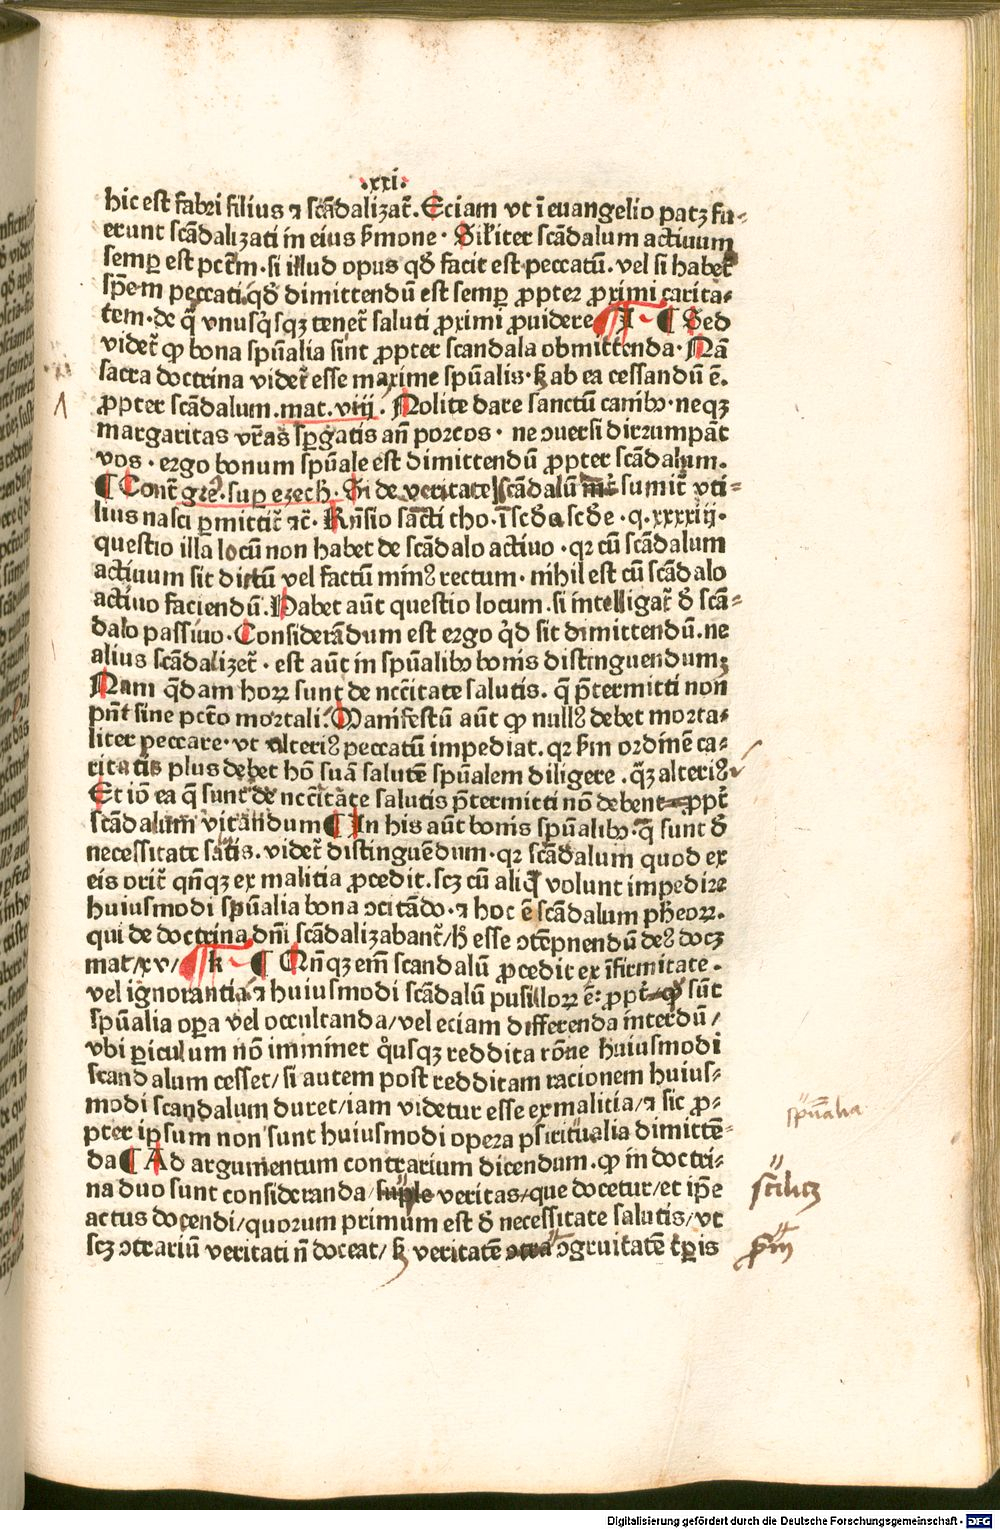 ·xxi·
hic est fabri filius ⁊ scādalizat̄. Eciam vt ī euangelio patꝫ fu⸗
erunt scādalizati in eius ẜmone · Silīter scādalum actiuum
semꝑ est pctm̄ · si illud opus qđ facit est peccatū. vel si habet
spēm peccati qđ dimittendū est semꝑ ꝓpter ꝓximi carita⸗
tem · de q̄ vnusq̇sqꝫ tenet̄ saluti ꝓximi ꝓuidere I ¶ Sed
videt̄ ꝙ bona spūalia sint ꝓpter scandala obmittenda · Nā
sacra doctrina videt̄ esse maxime spūalis · ẜ ab ea cessandū ē.
ꝓpter scādalum . mat. viij . Nolite dare sanctū canibꝰ · neqꝫ
margaritas vr̄as sꝑgatis an̄ porcos · ne ꝯuersi dirrumpāt
vos · ergo bonum spūale est dimittendū ꝓpter scādalum.
¶ Cont̄ gre᷒. suꝑ ezech̄ · Si de veritate scādalū sumit̄ vti⸗
lius nasci ꝑmittit̄ ⁊c̄ · Rn̄sio sancti tho · ī scđa scđe · q. xxxxiij ·
questio illa locū non habet de scādalo actiuo · qꝛ cū scādalum
actiuum sit dictū vel factū minꝰ rectum · nihil est cū scādalo
actiuo faciendū. Habet aūt questio locum . si intelligat̄ đ scā⸗
dalo passiuo · Considerādum est ergo qͥd sit dimittendū . ne
alius scādalizet̄ · est aūt in spūalibꝰ bonis distinguendum;
Nam q̄dam horꝝ sunt de nccītate salutis. q̄ p̄termitti non
pn̄t sine pctō mortali. Manifestū aūt ꝙ nullꝰ debet morta⸗
liter peccare · vt alteriꝰ peccatū impediat. qꝛ ẜm ordinē ca⸗
ritatis plus debet hō suā salutē spūalem diligere . q̄ꝫ alteriꝰ
Et iō ea q̄ sunt de nccītate salutis p̄termitti nō debent ꝓpt̄
scādalum vitandum ¶ In his aūt bonis spūalibꝰ · q̄ sunt đ
necessitate satis. videt̄ distinguēdum · qꝛ scādalum quod ex
eis orit̄ qn̄qꝫ ex malitia ꝓcedit . scꝫ cū aliq̄ volunt impedire
huiusmodi spūalia bona ꝯcitādo · ⁊ hoc ē scādalum ph̄eorꝝ.
qui de doctrina dn̄i scādalizabant̄/ h̄ esse ꝯtēpnendū deꝰ docꝫ
mat/xv/ k ¶ Qn̄qꝫ em̄ scandalū ꝓcedit ex īfirmitate .
vel ignorantia ⁊ huiusmodi scādalū pusillorꝝ ē: ꝓpt̄ ꝙ sūt
spūalia oꝑa vel occultanda/vel eciam differenda interdū/
vbi ꝑiculum nō imminet qͦusqꝫ reddita rōne huiusmodi
scandalum cesset/ si autem post redditam racionem huius⸗
modi scandalum duret/iam videtur esse ex malitia/⁊ sic ꝓ⸗
pter ipsum non sunt huiusmodi opera psiritualia dimittē⸗
da ¶ Ad argumentum contrarium dicendum . ꝙ in doctri⸗
na duo sunt consideranda/ suple veritas/que docetur/et ip̄e
actus docendi/quorum primum est đ necessitate salutis/vt
scꝫ ꝯtrariū veritati n̄ doceat/ ẜ veritatē ꝯtra ꝯgruitatē tꝑis
spūalia
scilicꝫ